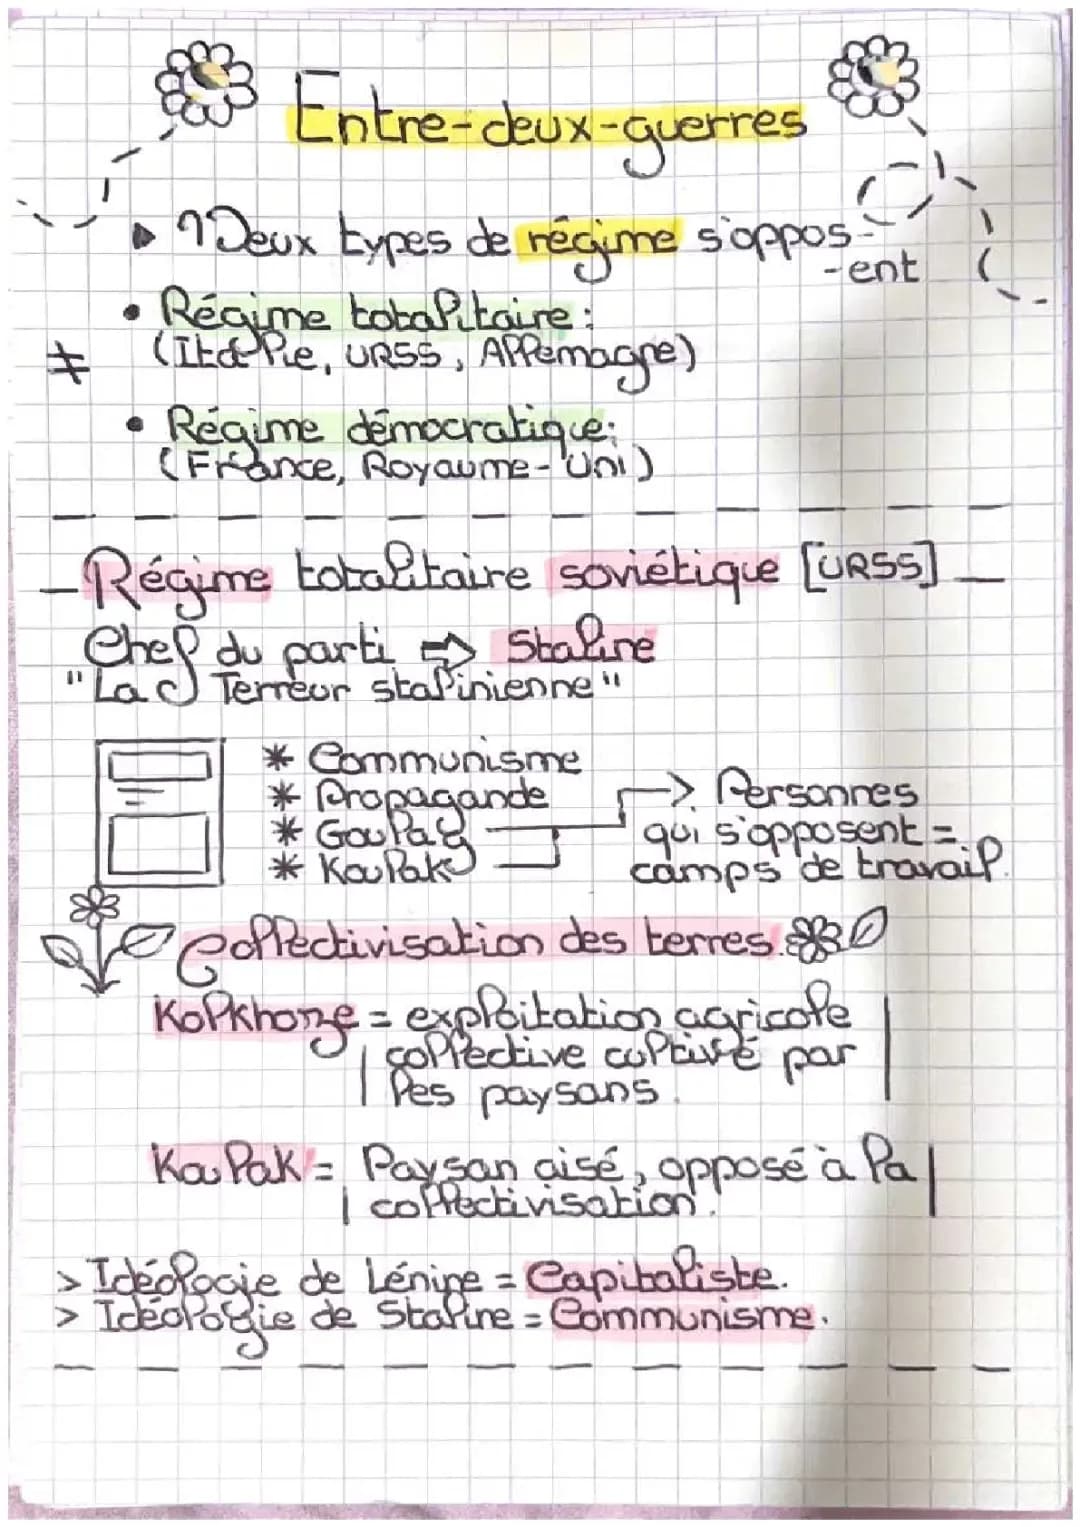 Entre-deux-guerres
Deux types de régime s'oppos-
-ent
• Régime totalitaire :
≠ (Italie, URSS, Allemagne)
• Régime démocratique :
(France, Royaume-Uni)
Régime totalitaire soviétique [URSS]
Chef du parti ⇒ Staline
"La Terreur stalinienne"
* Communisme
* Propagande
* Goulag
* Koulak
→ Personnes
qui s'opposent =
camps de travail.
Collectivisation des terres.
Kolkhoze = exploitation agricole
collective cultivé par
les paysans.
Koulak = Paysan aisé, opposé à la
collectivisation.
> Idéologie de Lénine = Capitaliste.
> Idéologie de Staline = Communisme.